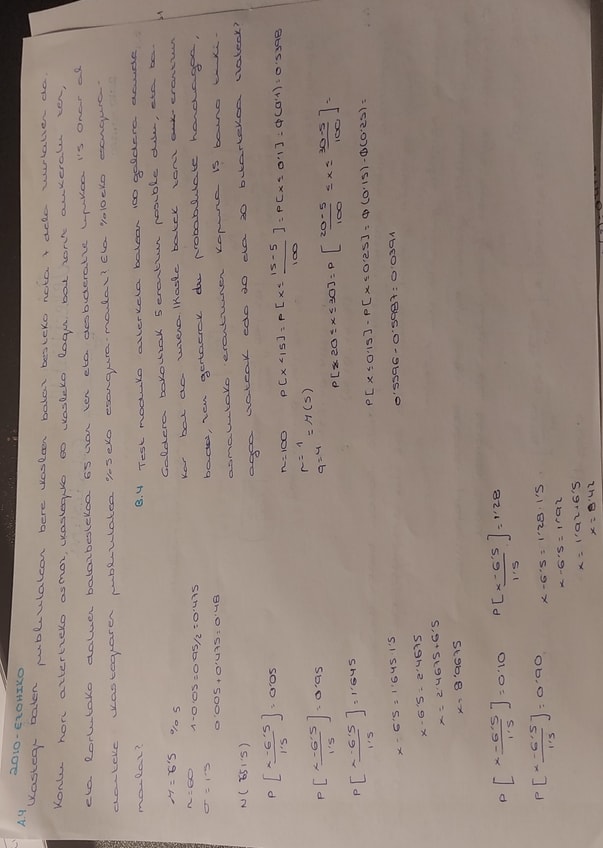 A.4 2010-EZOHIKO
Ikastegi baten publizitatean bere ikasleen batez besteko nota 7 dela ziurtatzen da.
Kontu hori aztertzeko asmoz, ikastegiko 60 ikasleko lagin bat zoriz aukeratu zen,
eta lortutako datuen batazbestekoa 6'5 izan zen eta desbideratze tipikoa 1'5. Onar al
daiteke ikastegiaren publizitatea %5eko esangura-mailaz? Eta %10eko esangura-
mailaz?
M=6'5 %5
n=60 1-0'05=0'95/2=0'475
σ=1'5 0'005+0'475=0'48
N(6'5, 1'5)
P[x-6'5/1'5]=0'05
P[x-6'5/1'5]=0'95
P[x-6'5/1'5]=1'645
x-6'5=1'645·1'5
x-6'5=2'4675
x=2'4675+6'5
x=8'9675
P[x-6'5/1'5]=0'10
P[x-6'5/1'5]=0'90
P[x-6'5/1'5]=1'28
x-6'5=1'28·1'5
x-6'5=1'92
x=1'92+6'5
x=8'42
B.4 Test moduko azterketa batean 100 galdera daude.
Galdera bakoitzak 5 erantzun posible ditu, eta ba-
kar bat da zuzena. Ikasle batek zoriz erantzun
badu, zein gertaerak du probabilitate handiagoa,
asmatutako erantzunen kopurua 15 baino txiki-
agoa izateak edo 20 eta 30 bitartekoa izateak?
n=100 P[x<15]=P[x≤15-5/100]=P[x≤0'1]=Φ(0'1)=0'5398
p=1
q=4 =M(5)
P[20≤x≤30]=P[20-5/100≤x≤30-5/100]=
P[x≤0'15]-P[x≤0'25]=Φ(0'15)-Φ(0'25)=
0'5596-0'5987=0'0391